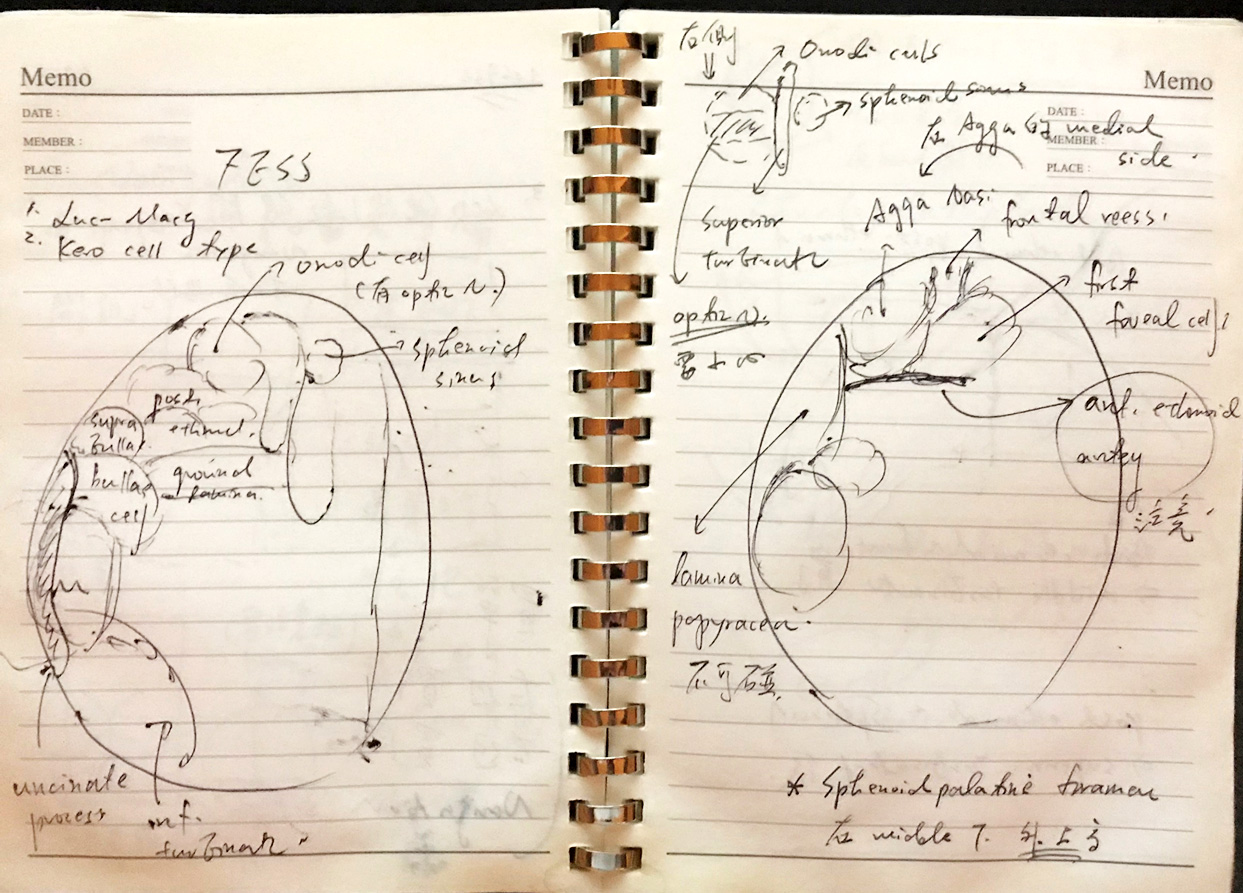 Memo
DATE :
MEMBER :
PLACE :
FESS
1. Luc- Macy
2. Kero cell type
onodi cell
(有 optic N.)
sphenoid
sinus
post.
ethmoid.
supra
bulla.
bulla
cell
ground
lamina.
uncinate
process
inf.
turbinate
Memo
DATE :
MEMBER :
PLACE :
右側
Onodi cells
sphenoid sinus
在 Agga 的 medial
side.
Superior
turbinate
Agga Nasi
frontal recess.
optic N.
要小心
first
foveal cell
ant. ethmoid
artery
注意
lamina
papyracea.
不可碰
* Sphenoid palatine foramen
在 middle T. 外上方